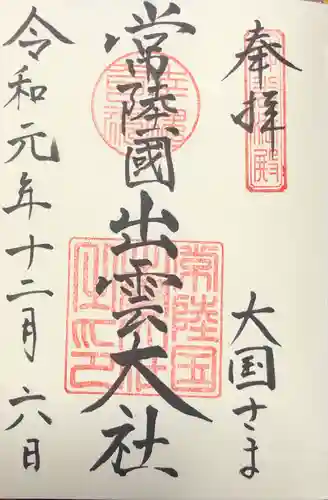 奉拝
大国さま
常陸國出雲大社
令和元年十二月六日
常陸国